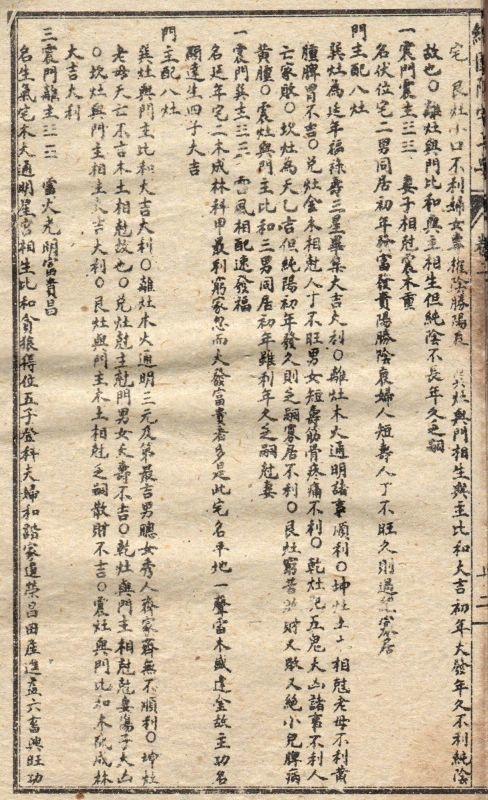 宅 艮灶小口不利婦女專權陰勝陽衰 灶與門相生與主比和大吉初年大發年久不利純陰
故也〇離灶與門比和與主相生但純陰不長年久乏嗣
一震門震主三三 妻子相尅震木重
名伏位宅二男同居初年發富發貴陽勝陰衰婦人短壽人丁不旺久則過 寡居
門主配八灶
巽灶為延年福祿壽三星畢集大吉大利〇離灶木火通明諸事順利〇坤灶土 相尅老母不利黃
腫脾胃不吉〇兌灶金木相尅人丁不旺男女短壽筋骨疼痛不利〇乾灶犯五鬼大凶諸事不利人
亡家敗〇坎灶為天乙吉但純陽初年發久則乏嗣寡居不利〇艮灶窮苦 財又敗又絕小兒脾病
黃腫〇震灶與門主比和三男同居初年雖利年久乏嗣尅妻
一震門巽主三三 雷風相配速發福
名延年宅二木成林科甲最利窮家忽而大發富貴者多是此宅名平地一聲雷木盛逢金故主功名
顯達生四子大吉
門主配八灶
巽灶與門主比和大吉大利〇離灶木火通明三元及第最吉男聰女秀人齊家齊無不順利〇坤灶
老母夭亡不言木土相尅故也〇兌灶尅主尅門男女夭壽不吉〇乾灶與門主相尅尅妻傷子大凶
〇坎灶與門主相生大吉大利〇艮灶與門主木土相尅乏嗣散財不吉〇震灶與門比和木 成林
大吉大利
三震門離主三三 雷火光明富貴昌
名生氣宅木火通明星宮相生比和貪狼得位五子登科夫婦和諧家道榮昌田產進益六畜興旺功